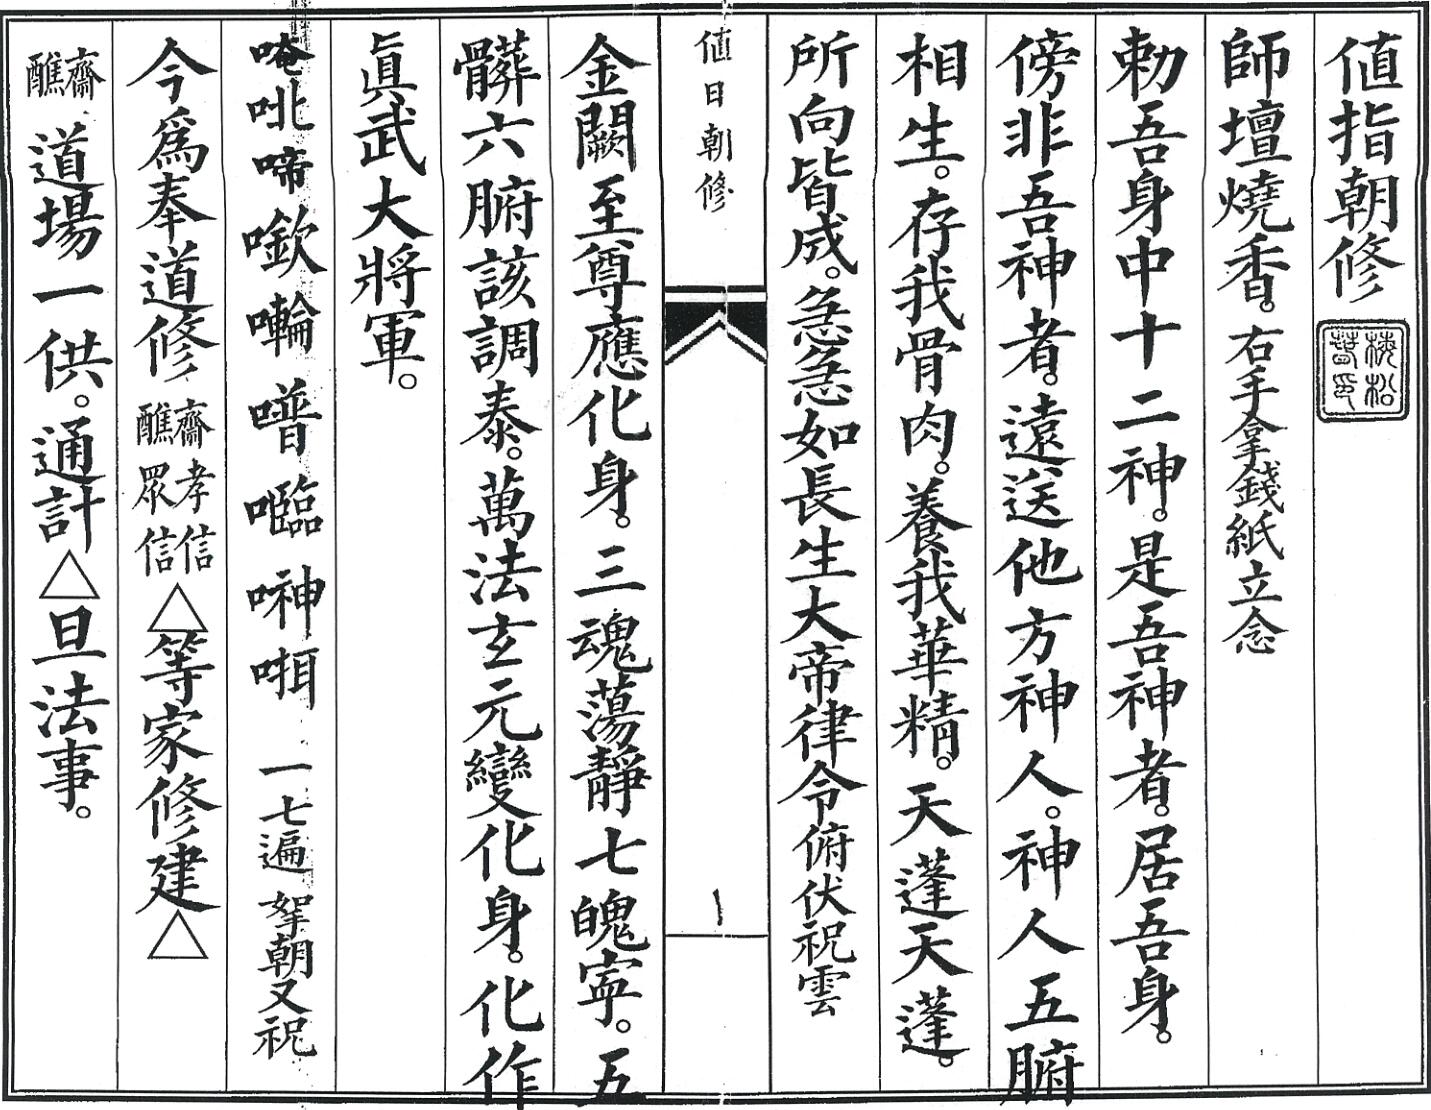 値指朝修
師壇燒香。右手拿錢紙立念
勅吾身中十二神。是吾神者。居吾身。
傍非吾神者。遠送他方神人。神人五腑
相生。存我骨肉。養我華精。天蓬天蓬。
所向皆成。急急如長生大帝律令俯伏祝雲
値日朝修
金闕至尊應化身。三魂蕩靜七魄寍。五
髒六腑該調泰。萬法玄元變化身。化作
眞武大將軍。
唵吡啼嶔㘓噆𡃤𠹌㖇 一七遍 拏朝又祝
今爲奉道修 齋醮 孝信 眾信 △等家修建△
齋醮 道場一供。通計△旦法事。